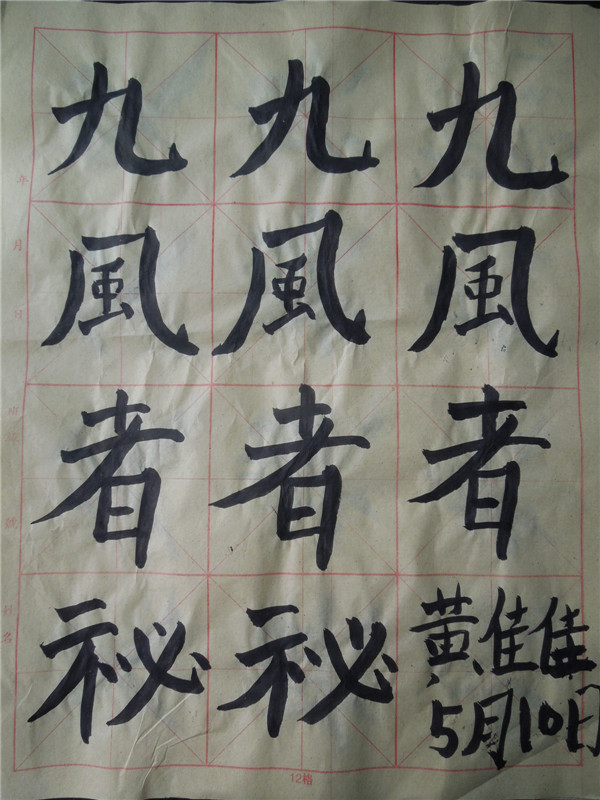 九九九
風風風
者者者
祕祕
黃佳佳
5月10日
年月日
姓名
12格